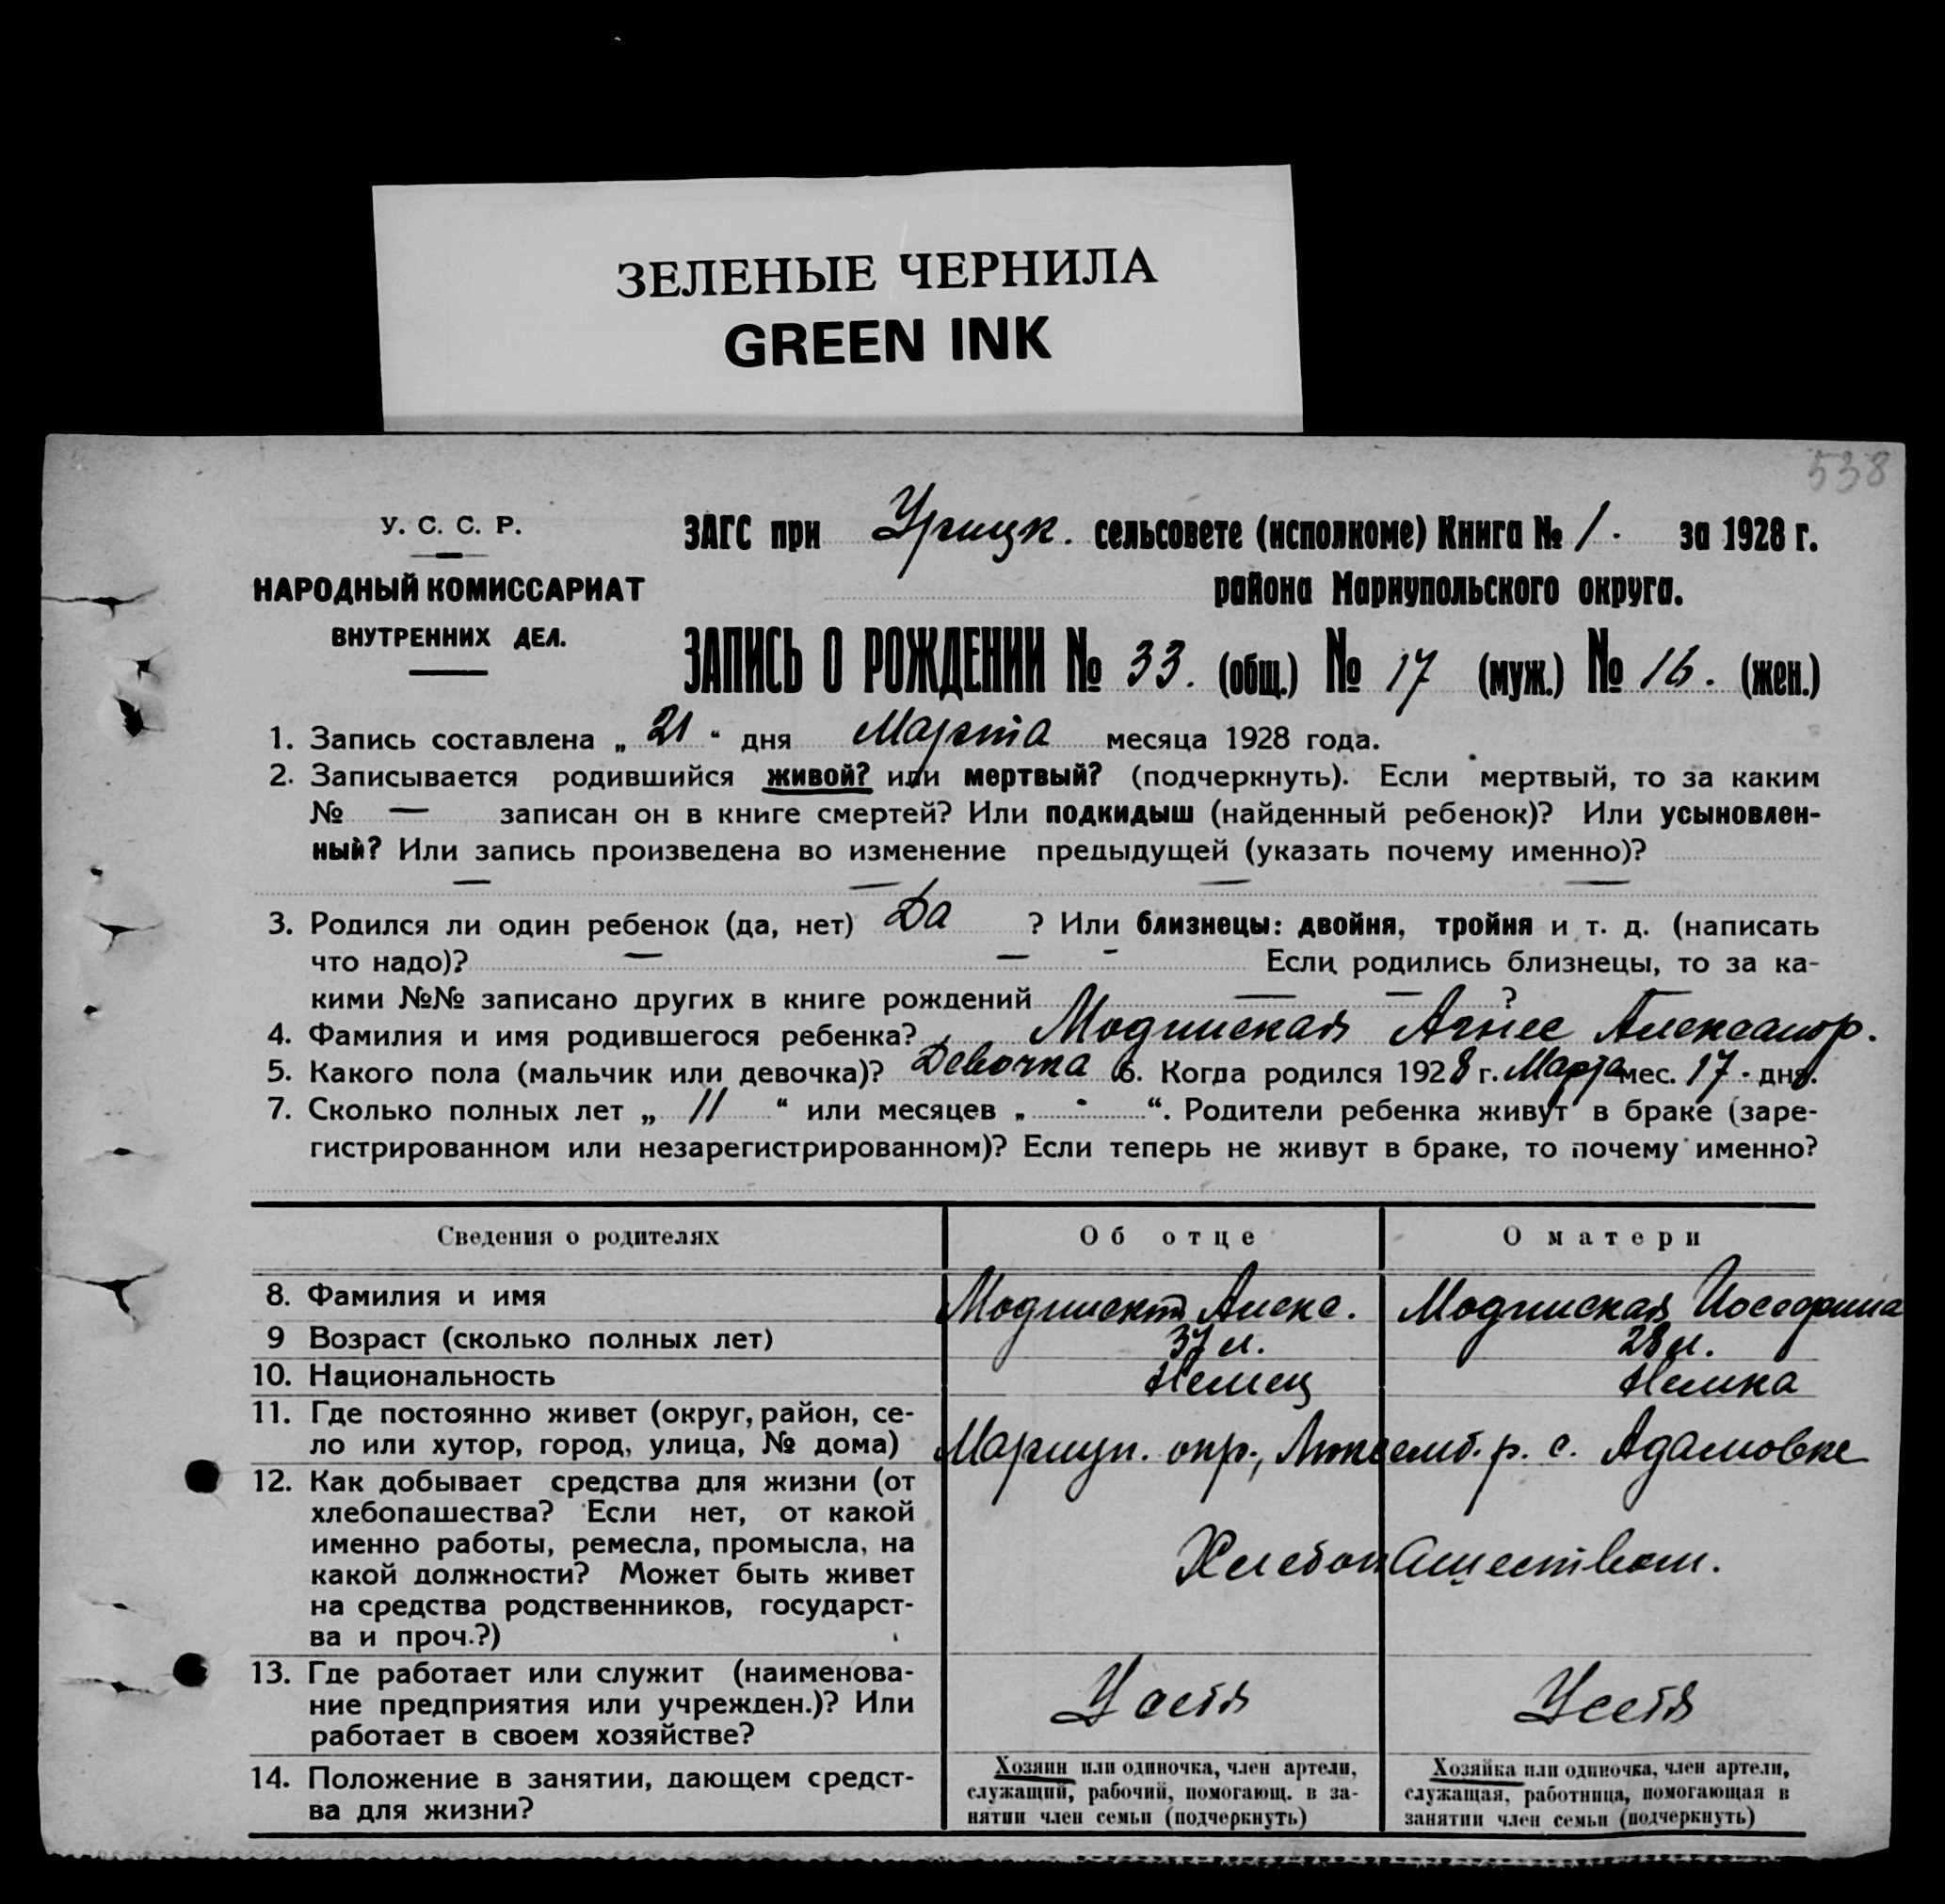 ЗЕЛЕНЫЕ ЧЕРНИЛА
GREEN INK
538
У. С. С. Р.
НАРОДНЫЙ КОМИССАРИАТ
ВНУТРЕННИХ ДЕЛ.
ЗАГС при Урицк. сельсовете (исполкоме) Книга № 1. за 1928 г.
района Мариупольского округа.
ЗАПИСЬ О РОЖДЕНИИ № 33. (общ.) № 17 (муж.) № 16. (жен.)
1. Запись составлена „ 21 “ дня Марта месяца 1928 года.
2. Записывается родившийся живой? или мертвый? (подчеркнуть). Если мертвый, то за каким
№ — записан он в книге смертей? Или подкидыш (найденный ребенок)? Или усыновлен-
ный? Или запись произведена во изменение предыдущей (указать почему именно)?
— — — —
3. Родился ли один ребенок (да, нет) Да ? Или близнецы: двойня, тройня и т. д. (написать
что надо)? — — - Если родились близнецы, то за ка-
кими №№ записано других в книге рождений — — ?
4. Фамилия и имя родившегося ребенка? Модлинская Агнес Александр.
5. Какого пола (мальчик или девочка)? Девочка 6. Когда родился 1928 г. Марта мес. 17 · дня.
7. Сколько полных лет „ 11 “ или месяцев „ - “. Родители ребенка живут в браке (заре-
гистрированном или незарегистрированном)? Если теперь не живут в браке, то почему именно?
Сведения о родителях Об отце О матери
8. Фамилия и имя Алекс. Модлинская Иосефина
9 Возраст (сколько полных лет) 37 л. 28 л.
10. Национальность Немец Немка
11. Где постоянно живет (округ, район, се-
ло или хутор, город, улица, № дома) Мариуп. окр., Люксемб. р. с. Адамовке
12. Как добывает средства для жизни (от
хлебопашества? Если нет, от какой
именно работы, ремесла, промысла, на
какой должности? Может быть живет
на средства родственников, государст-
ва и проч.?)
Хлебопашеством.
13. Где работает или служит (наименова-
ние предприятия или учрежден.)? Или
работает в своем хозяйстве?
У себя У себя
14. Положение в занятии, дающем средст-
ва для жизни?
Хозяин или одиночка, член артели,
служащий, рабочий, помогающ. в за-
нятии член семьи (подчеркнуть)
Хозяйка или одиночка, член артели,
служащая, работница, помогающая в
занятии член семьи (подчеркнуть)